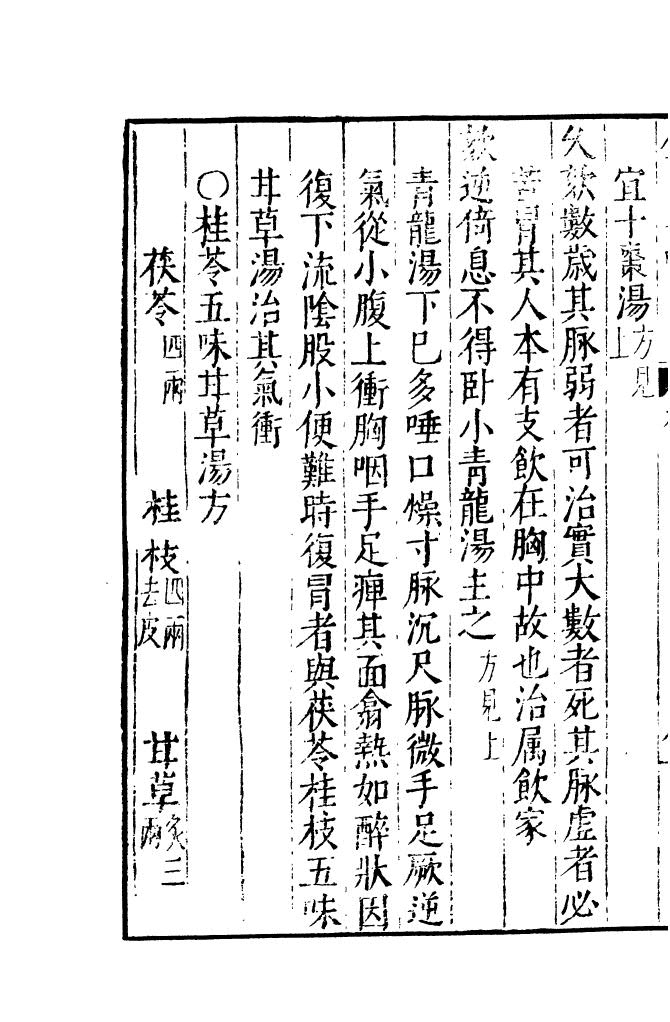 宜十棗湯方見上
久欬數歲其脉弱者可治實大數者死其脉虛者必
苦冒其人本有支飲在胸中故也治属飲家
欬逆倚息不得卧小青龍湯主之方見上
青龍湯下已多唾口燥寸脉沉尺脉微手足厥逆
氣從小腹上衝胸咽手足痺其面翕熱如醉狀因
復下流陰股小便難時復冒者與茯苓桂枝五味
甘草湯治其氣衝
〇桂苓五味甘草湯方
茯苓四兩 桂枝四兩去皮 甘草炙三兩